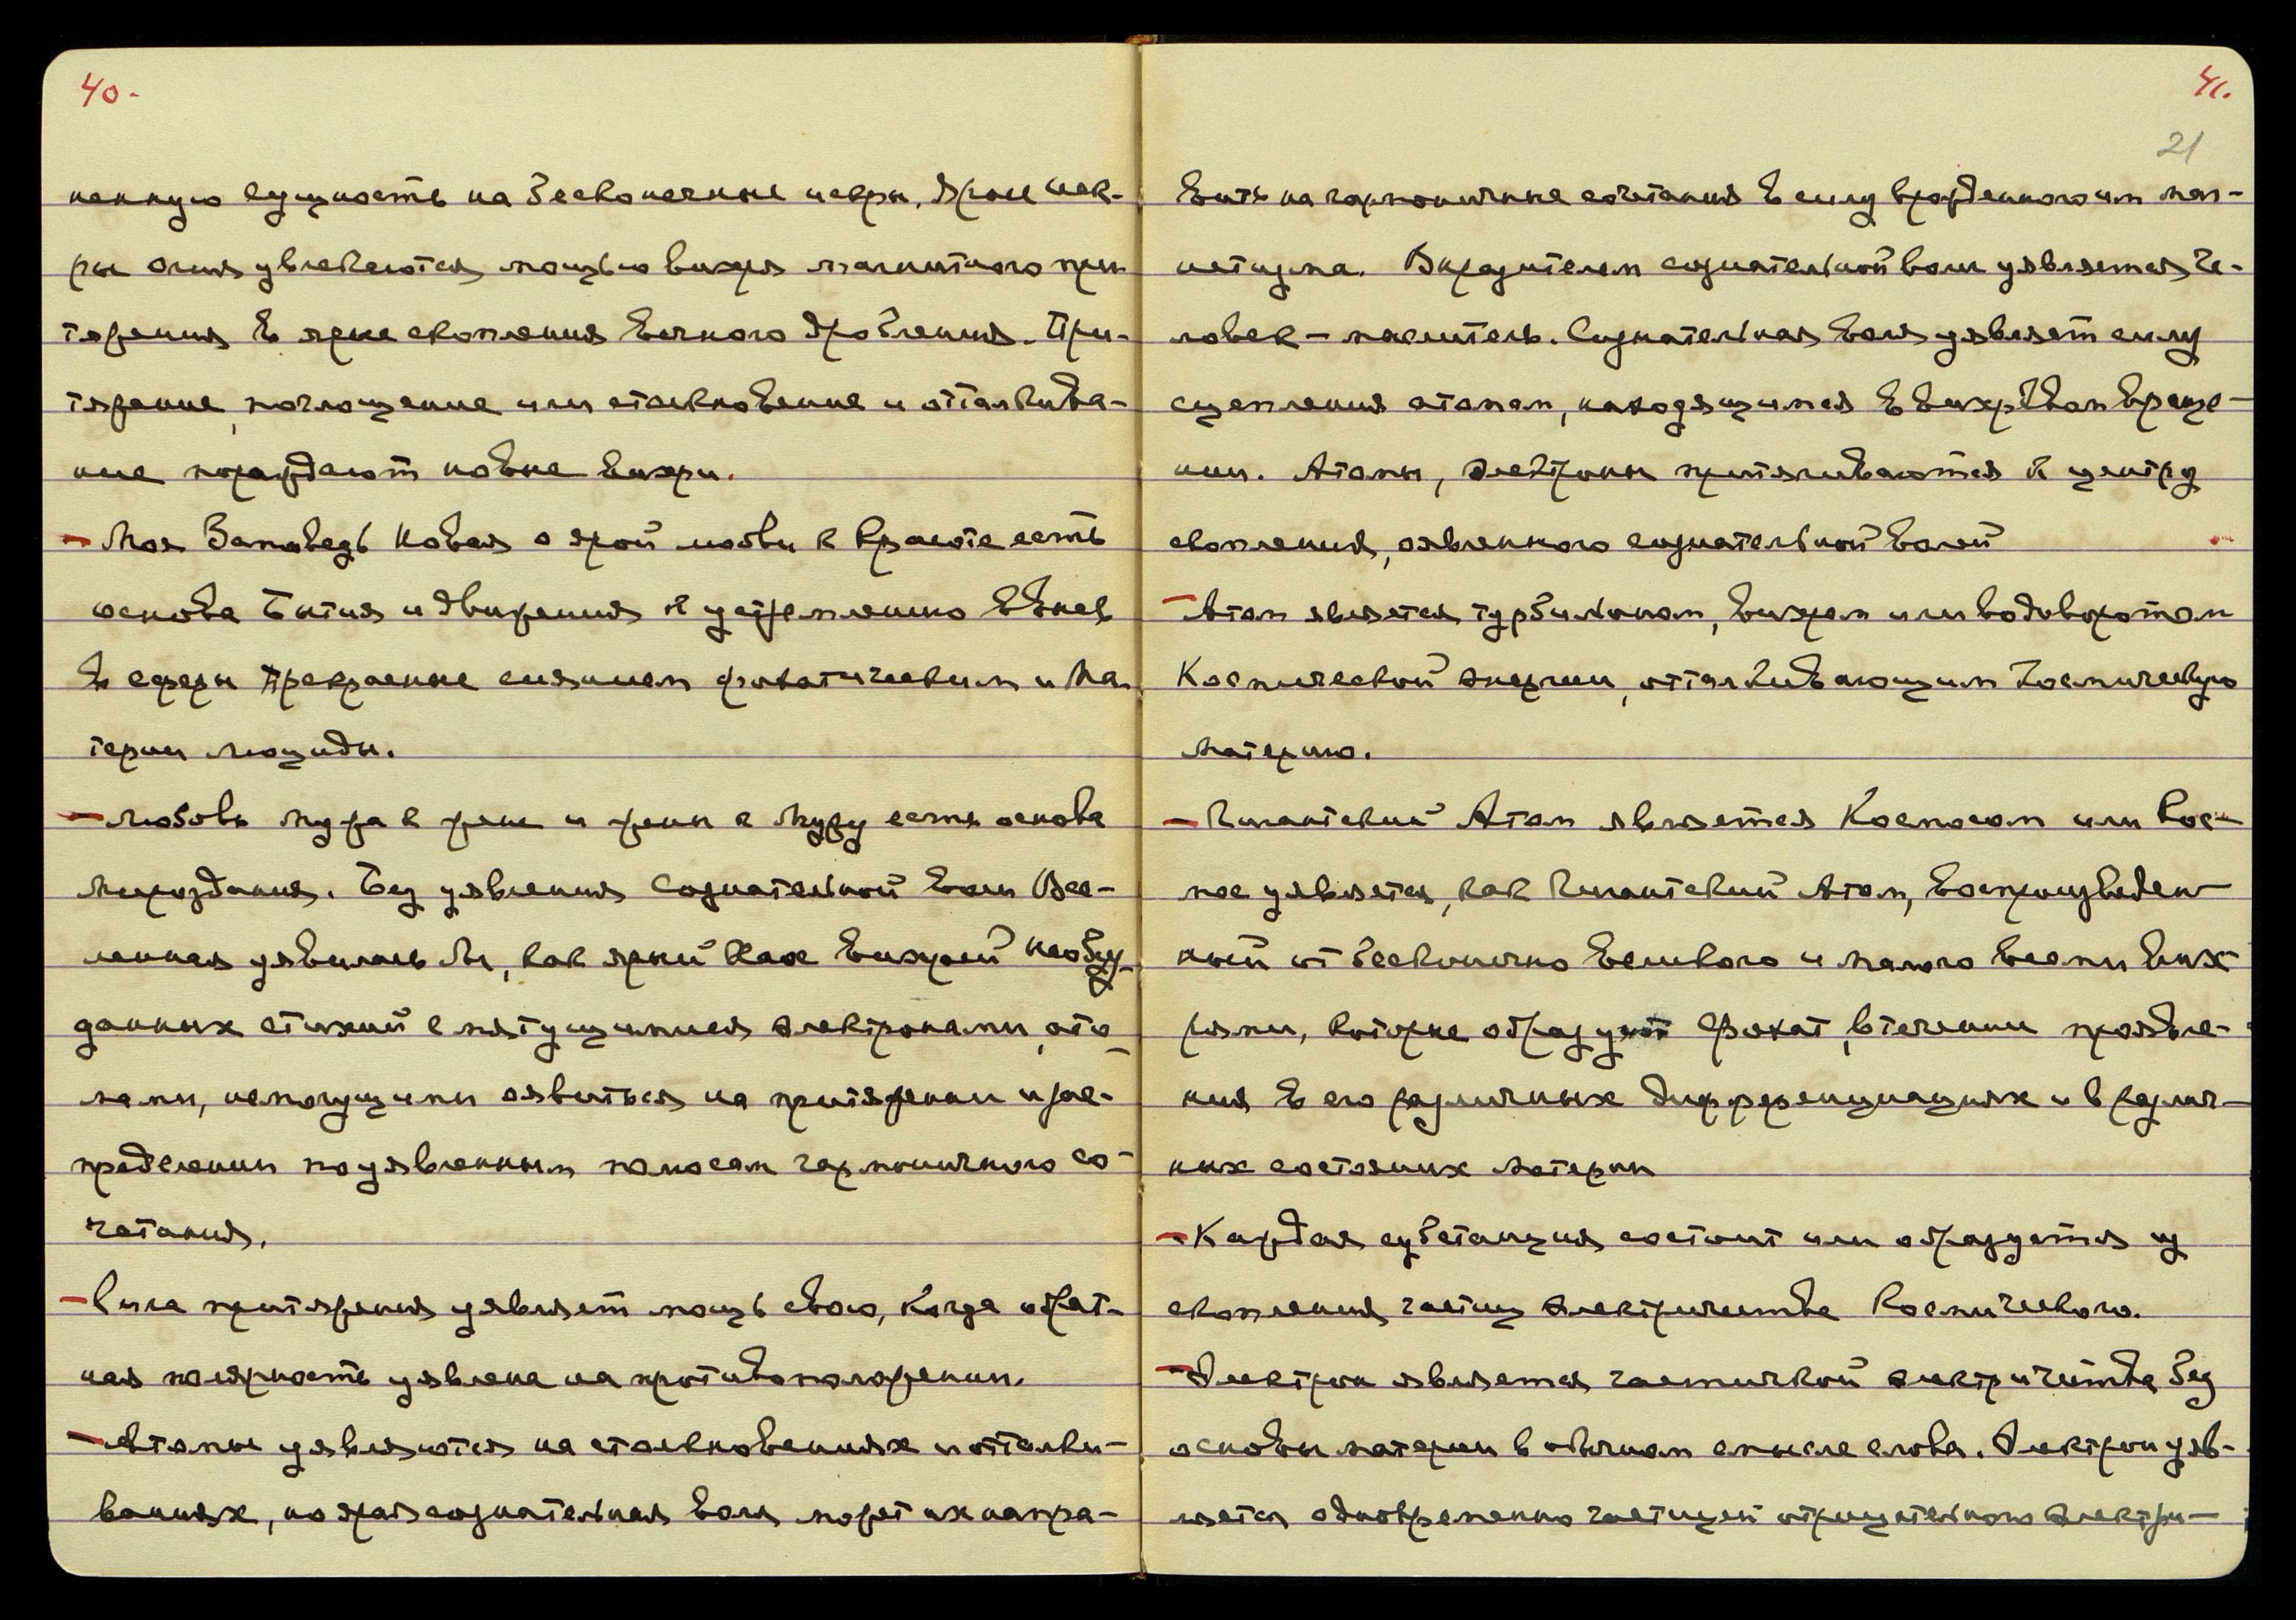 40.
ненную сущность на бесконечные искры. Ярые иск-
ры огня увлекаются мощью вихря магнитного при
тяжения в ярые скопления вечного дробления. При-
тяжение, поглощение или столкновение и отталкива-
ние порождают новые вихри.
– Моя Заповедь Новая о ярой любви к Красоте есть
основа Бытия и движения к устремлению
в сферы Прекрасные сиянием фохатическим и Ма-
терии Люциды.
– Любовь мужа к жене и жены к мужу есть основа
Мироздания. Без уявления Сознательной воли Все-
ленная уявилась бы, как ярый Хаос вихрей необуз-
данных стихий с мятущимися электронами, ато-
мами, немогущими оявиться на притяжении и рас-
пределении по уявленным полюсам гармоничного со-
четания.
– Сила притяжения уявляет мощь свою, когда обрат-
ная полярность уявлена на противоположении.
– Атомы уявляются на столкновениях и отталки-
ваниях, но ярая сознательная воля может их напра-
41.
21
вить на гармоничные сочетания в силу врожденного им маг-
нетизма. Выразителем сознательной воли уявляется Че-
ловек – мыслитель. Сознательная воля уявляет силу
сцепления атомам, находящимся в вихревом враще-
нии. Атомы, электроны притягиваются к центру
скопления, оявленного сознательной волей
– Атом является турбильоном, вихрем или водоворотом
Космической энергии, отталкивающим Космическую
Материю.
– Гигантский Атом является Космосом или Кос-
мос уявляется, как Гигантский Атом, воспроизведен-
ный от бесконечно великого и малого всеми вих-
рями, которые образует Фохат, в течении проявле-
ния в его различных дифференциациях и в различ-
ных состояниях Материи
– Каждая субстанция состоит или образуется из
скопления частиц электричества Космического.
– Электрон является частичкой электричества без
основы материи в обычном смысле слова. Электрон уяв-
ляется одновременно частицей отрицательного электри-